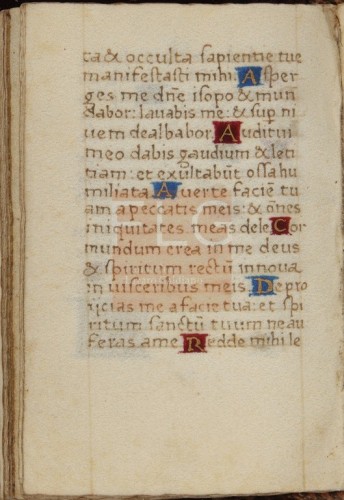 ta & occulta sapientie tue
manifestasti mihi. Asper
ges me dñe isopo & mun
dabor: lavabis me: & sup ni
vem dealbabor. Auditui
meo dabis gaudium & leti
tiam: et exultabũt ossa hu
miliata. Averte faciẽ tu
am a peccatis meis: & oẽs
iniquitates meas dele. Cor
mundum crea in me deus
& spiritum rectũ innova
in visceribus meis. Ne pro
ijcias me a facie tua: et spi
ritum sanctũ tuum ne au
feras a me. Redde mihi le